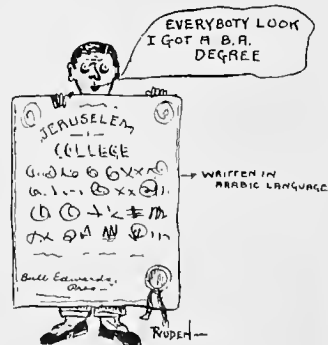 EVERYBOTY LOOK
I GOT A B.A.
DEGREE
JERUSELEM
COLLEGE
WRITTEN IN
ARABIC LANGUAGE
Bull Edwards,
Pres—
RUDEN